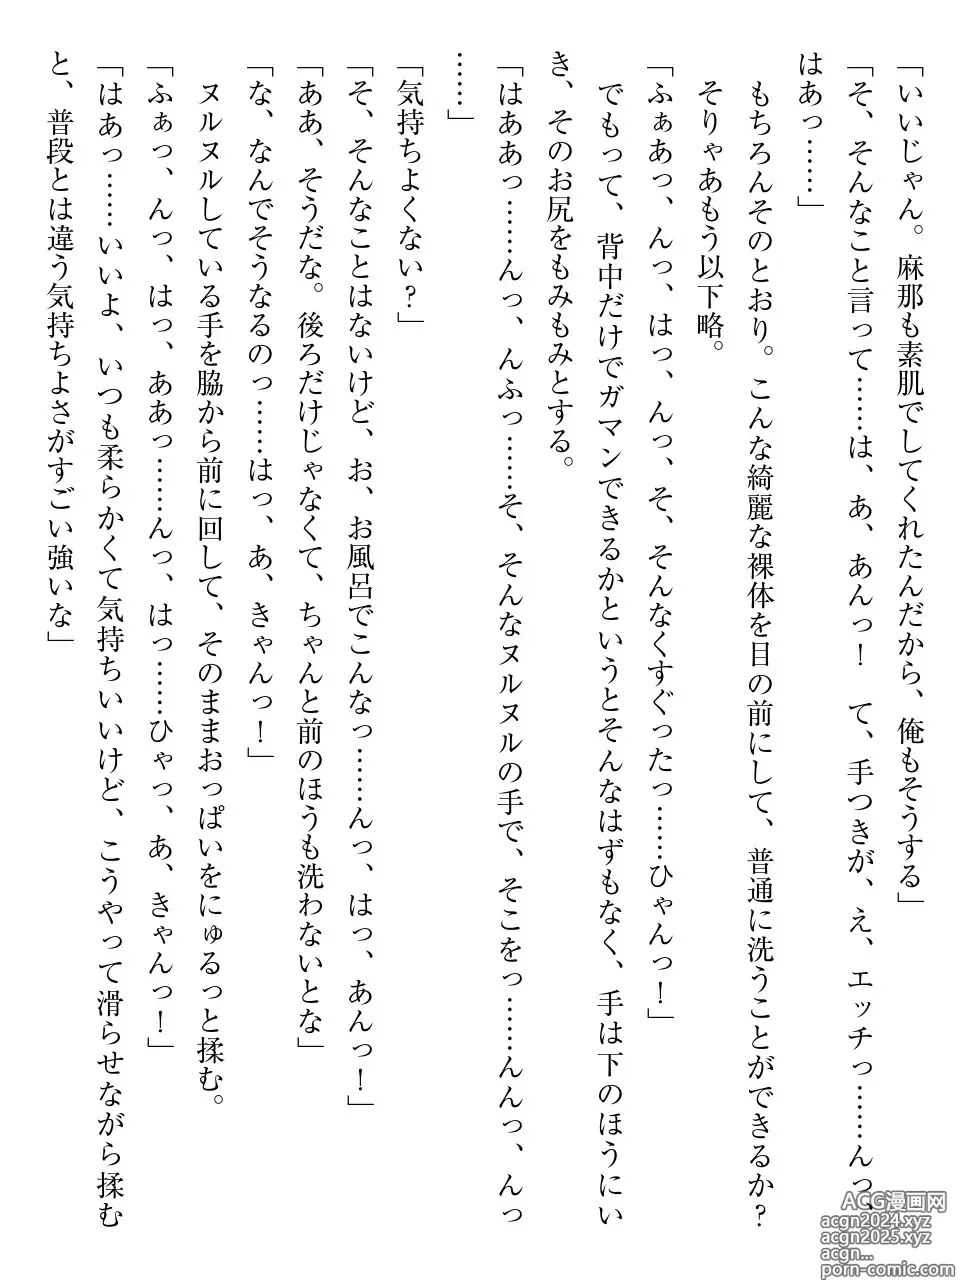 「いいじゃん。麻那も素肌でしてくれたんだから、俺もそうする」
「そ、そんなこと言って……は、あ、あんっ！　て、手つきが、え、エッチっ……んっ、
はあっ……」
　もちろんそのとおり。こんな綺麗な裸体を目の前にして、普通に洗うことができるか？
　そりゃあもう以下略。
「ふぁあっ、んっ、はっ、んっ、そ、そんなくすぐったっ……ひゃんっ！」
　でもって、背中だけでガマンできるかというとそんなはずもなく、手は下のほうにい
き、そのお尻をもみもみとする。
「はああっ……んっ、んふっ……そ、そんなヌルヌルの手で、そこをっ……んんっ、んっ
……」
「気持ちよくない？」
「そ、そんなことはないけど、お、お風呂でこんなっ……んっ、はっ、あんっ！」
「ああ、そうだな。後ろだけじゃなくて、ちゃんと前のほうも洗わないとな」
「な、なんでそうなるのっ……はっ、あ、きゃんっ！」
　ヌルヌルしている手を脇から前に回して、そのままおっぱいをにゅるっと揉む。
「ふぁっ、んっ、はっ、ああっ……んっ、はっ……ひゃっ、あ、きゃんっ！」
「はあっ……いいよ、いつも柔らかくて気持ちいいけど、こうやって滑らせながら揉む
と、普段とは違う気持ちよさがすごい強いな」
ACG漫画网
acgn2024.xyz
acgn2025.xyz
acgn...
porn-comic.com